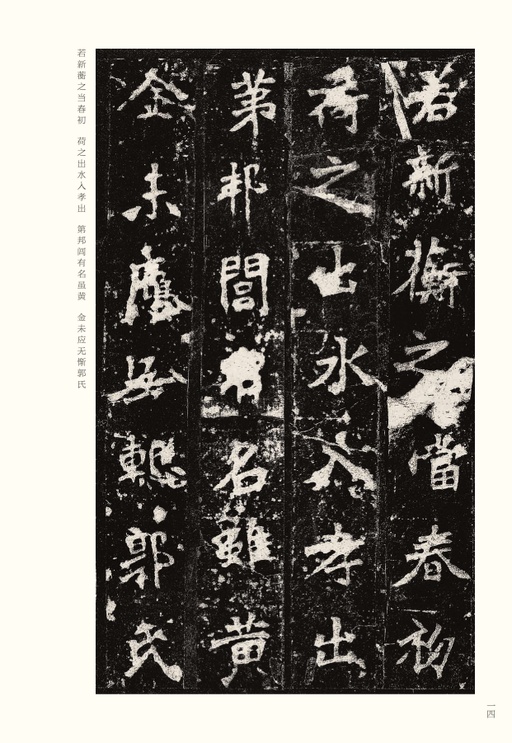 若新蘅之當春初
荷之出水入孝出
第邦閭有名雖黃
金未應無慙郭氏
若新蘅之当春初　荷之出水入孝出　第邦闾有名虽黄　金未应无惭郭氏
一四